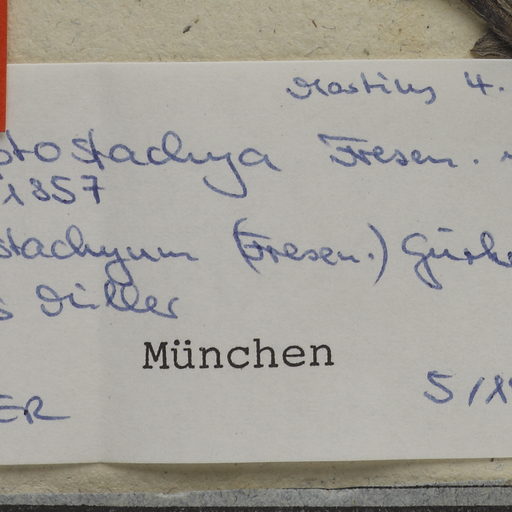 Martius 4.
stostachya Fresen.
1857
stachyum (Fresen.) Gürke
s Müller
München
ER 5/19